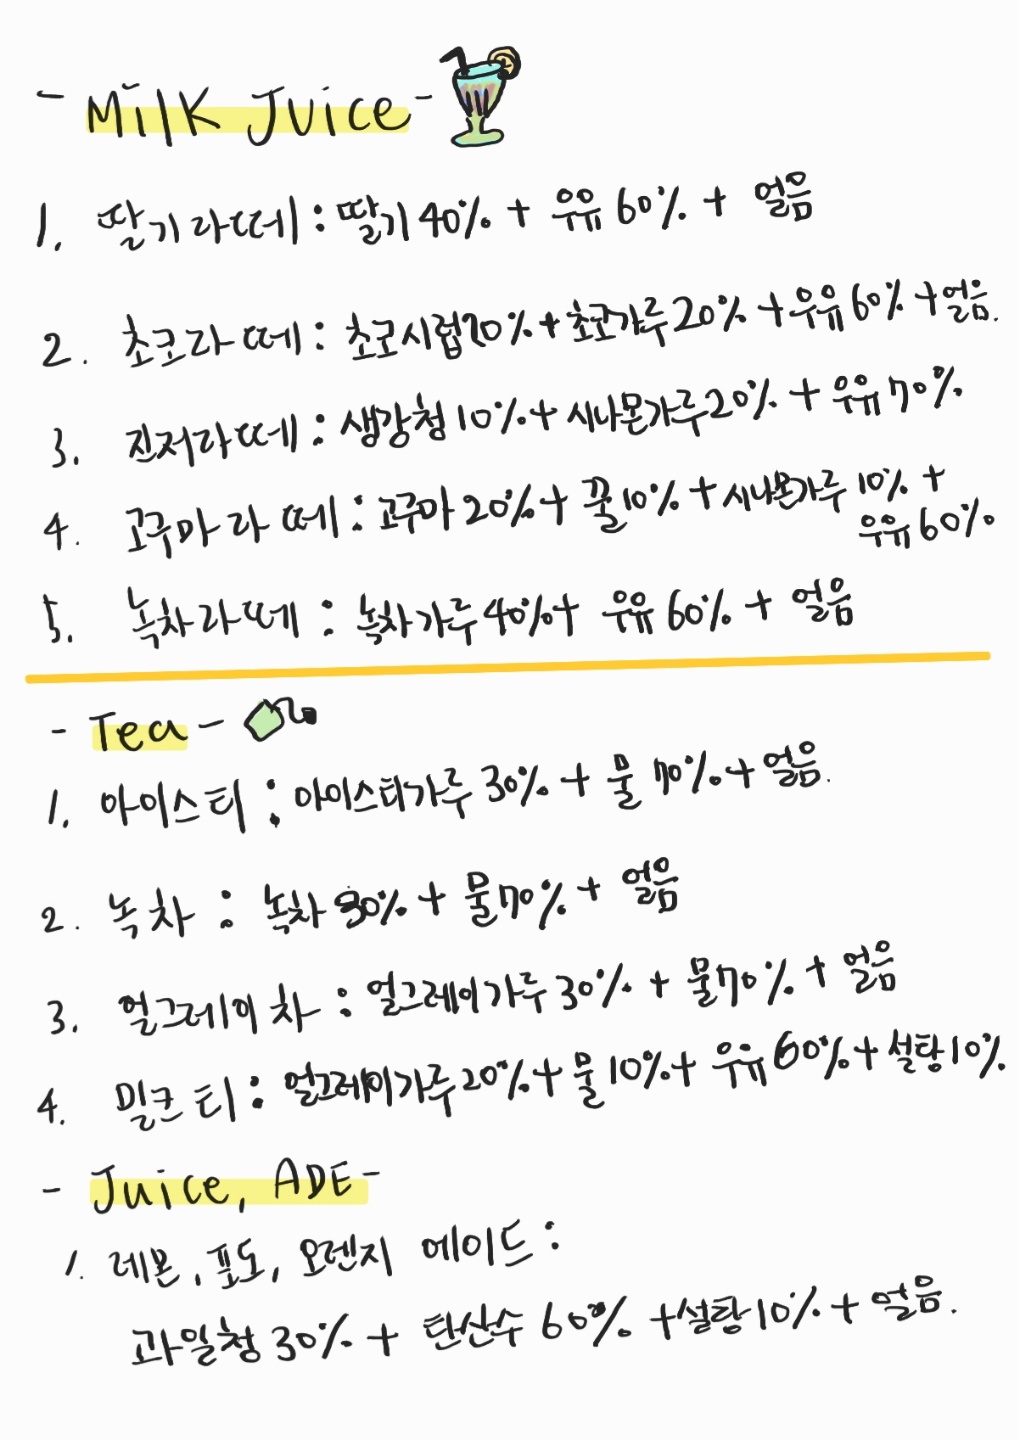 - Milk Juice -
1. 딸기라떼 : 딸기 40% + 우유 60% + 얼음
2. 초코라떼 : 초코시럽20% + 초코가루 20% + 우유 60% + 얼음.
3. 진저라떼 : 생강청 10% + 시나몬가루 20% + 우유 70%
4. 고구마라떼 : 고구마 20% + 꿀 10% + 시나몬가루 10% +
우유 60%
5. 녹차라떼 : 녹차가루 40% + 우유 60% + 얼음
- Tea -
1. 아이스티 : 아이스티가루 30% + 물 70% + 얼음.
2. 녹차 : 녹차 30% + 물 70% + 얼음
3. 얼그레이 차 : 얼그레이가루 30% + 물 70% + 얼음
4. 밀크티 : 얼그레이가루 20% + 물 10% + 우유 60% + 설탕 10%
- Juice, ADE -
1. 레몬, 포도, 오렌지 에이드 :
과일청 30% + 탄산수 60% + 설탕 10% + 얼음.